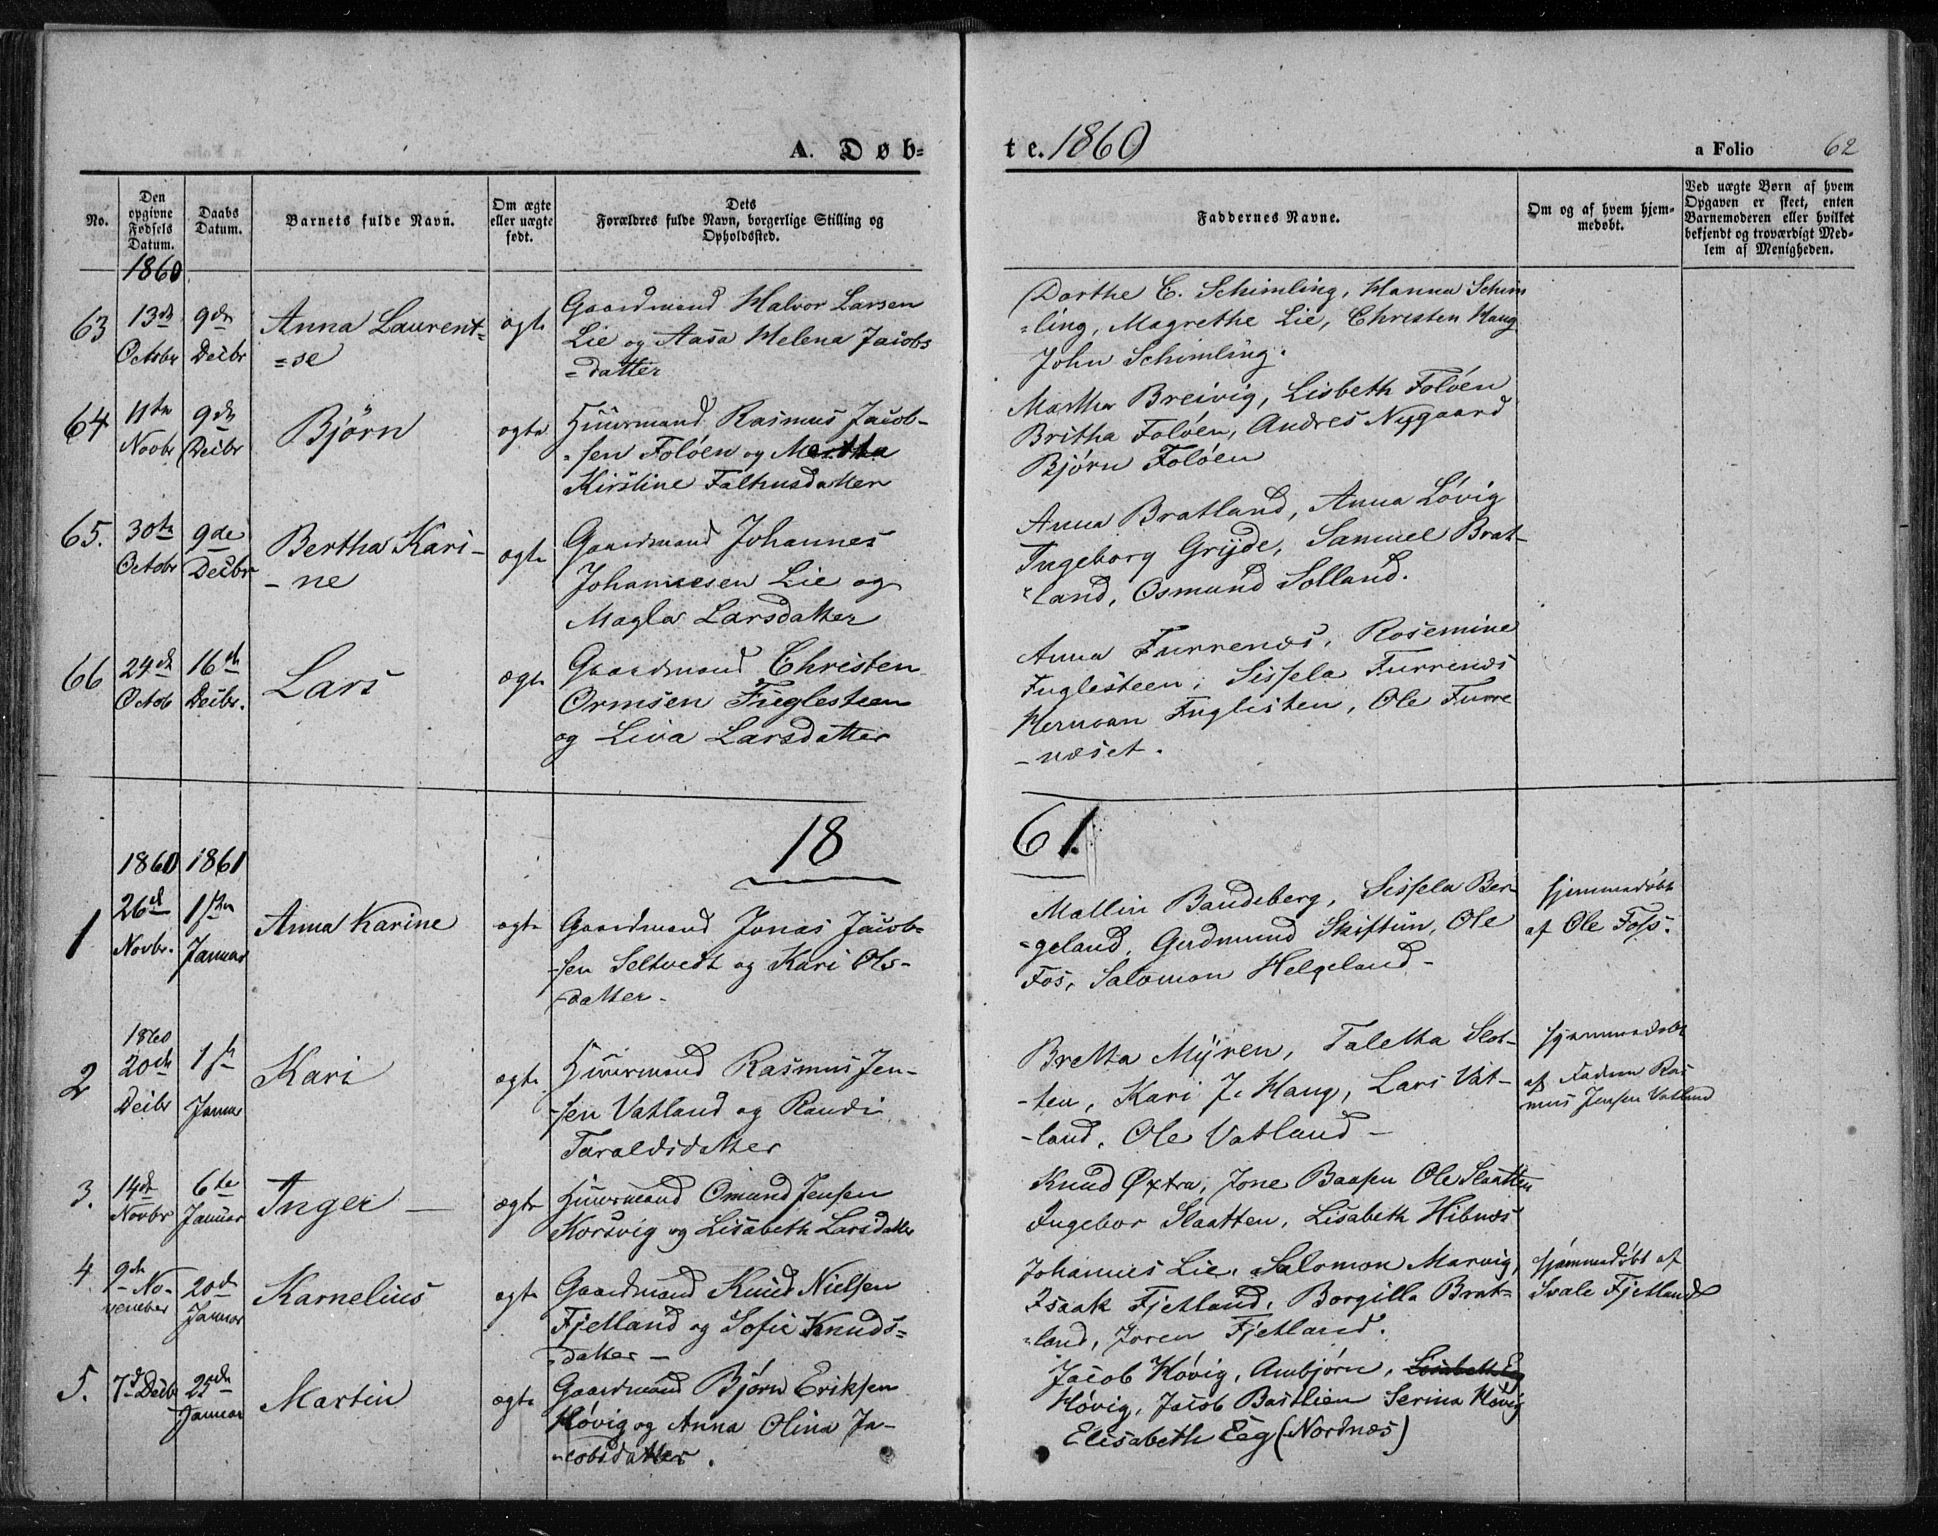 A. Døb-
te. 1860
a Folio 62
No.
Den opgivne Fødsels Datum.
Daabs Datum.
Barnets fulde Navn.
Om ægte eller uægte født.
Dets Forældres fulde Navn, borgerlige Stilling og Opholdssted.
Faddernes Navne.
Om og af hvem hjemmedøbt.
Ved uægte Børn af hvem Opgaven er skeet, enten Barnemoderen eller hvilket bekjendt og troværdigt Medlem af Menigheden.
1860
63 13de Octobr 9de Decbr Anna Laurent-
=se
ægte
Gaardmand Halvor Larsen
Lie og Aasa Helena Jacobs
=datter
Dorthe C. Schimling, Hanna Schim
=ling, Magrethe Lie, Christen Haug
John Schimling.
64 11te Novbr 9de Decbr Bjørn
ægte
Huusmand Rasmus Jacob-
-sen Foløen og Martha
Kirstine Falkusdatter
Martha Breivig, Lisbeth Foløen
Britha Foløen, Andres Nygaard
Bjørn Foløen
65. 30te Octobr 9de Decbr Bertha Kari-
-ne
ægte
Gaardmand Johannes
Johannesen Lie og
Magla Larsdatter
Anna Bratland, Anna Løvig
Ingeborg Grijde, Samuel Brat-
land, Osmund Solland.
66 24de Octob 16de Decbr. Lars
ægte
Gaardmand Christen
Ormsen Fuglesteen
og Liva Larsdatter
Anna Furrenæs, Rosemine
Fuglesteen, Sissela Furrenæs
Herman Fuglesten, Ole Furre
-næset.
18
61.
1860 1861
1 26de Novbr. 1ste Januar Anna Karine
ægte
Gaardmand Jonas Jacob-
-sen Seltvedt og Kari Ols-
datter-
Mallin Bandsberg, Sissela Ber
-geland, Gudmund Skiftun, Ole
Fos, Salomon Helgeland-
hjemmedøbt
af Ole Foss.
1860
2 20de Decbr 1ste Januar Kari
ægte
Huusmand Rasmus Jen-
-sen Vatland og Randi
Taraldsdatter
Bretta Mÿren, Taletha Slot-
-ten, Kari J. Haug, Lars Vat-
-land, Ole Vatland-
hjemmedøbt
af Faderen Ras
mus Jensen Vatland
3. 14de Novbr 6te Januar Inger-
ægte
Huusmand Omund Jensen
Korsvig og Lisabeth Larsdatter
Knud Øxtra, Jone Baasen Ole Slaatten
Ingebor Slaatten, Lisabeth Hibnæs
4 9de November 20de Januar Karnelius
ægte
Gaardmand Knud Nielsen
Fjetland og Sofie Knuds=
datter-
Johannes Lie, Salomon Marvig,
Isaak Fjetland, Borgilla Brat-
=land, Joren Fjetland.
hjemmedøbt af
Svale Fjetland
5. 7de Decbr 25de Januar Martin
ægte
Gaardmand Bjørn Eriksen
Høvig og Anna Olina Ja-
-cobsdatter.
Jacob Høvig, Ambjørn, Lisabeth Eg
Høvig, Jacob Bastlien Serina Høvig
Elisabeth Eeg (Nordnæs)